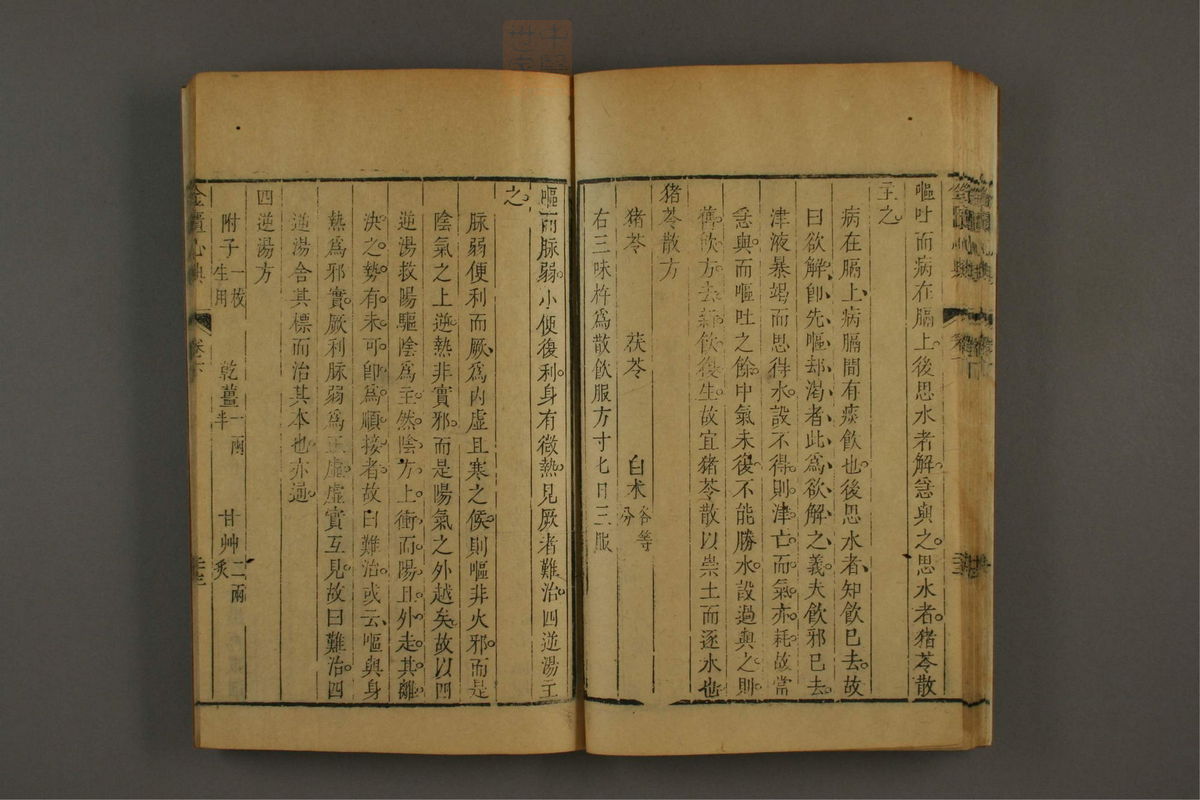 嘔吐而病在膈上後思水者解急與之思水者猪苓散
主之
病在膈上病膈間有痰飲也後思水者知飲已去故
曰欲解卽先嘔却渴者此爲欲解之義夫飲邪已去
津液暴竭而思得水設不得則津亡而氣亦耗故當
急與而嘔吐之餘中氣未復不能勝水設過與之則
舊飲方去新飲復生故宜猪苓散以崇土而逐水也
猪苓散方
猪苓 茯苓 白朮各等分
右三味杵爲散飲服方寸七日三服
嘔而脉弱小便復利身有微熱見厥者難治四逆湯主
之
脉弱便利而厥爲內虛且寒之候則嘔非火邪而是
陰氣之上逆熱非實邪而是陽氣之外越矣故以四
逆湯救陽驅陰爲主然陰方上衝而陽且外走其離
決之勢有未可卽爲順接者故曰難治或云嘔與身
熱爲邪實厥利脉弱爲正虛虛實互見故曰難治四
逆湯舍其標而治其本也亦通
四逆湯方
附子一枚生用 乾薑一兩半 甘艸二兩炙
金匱心典 卷下